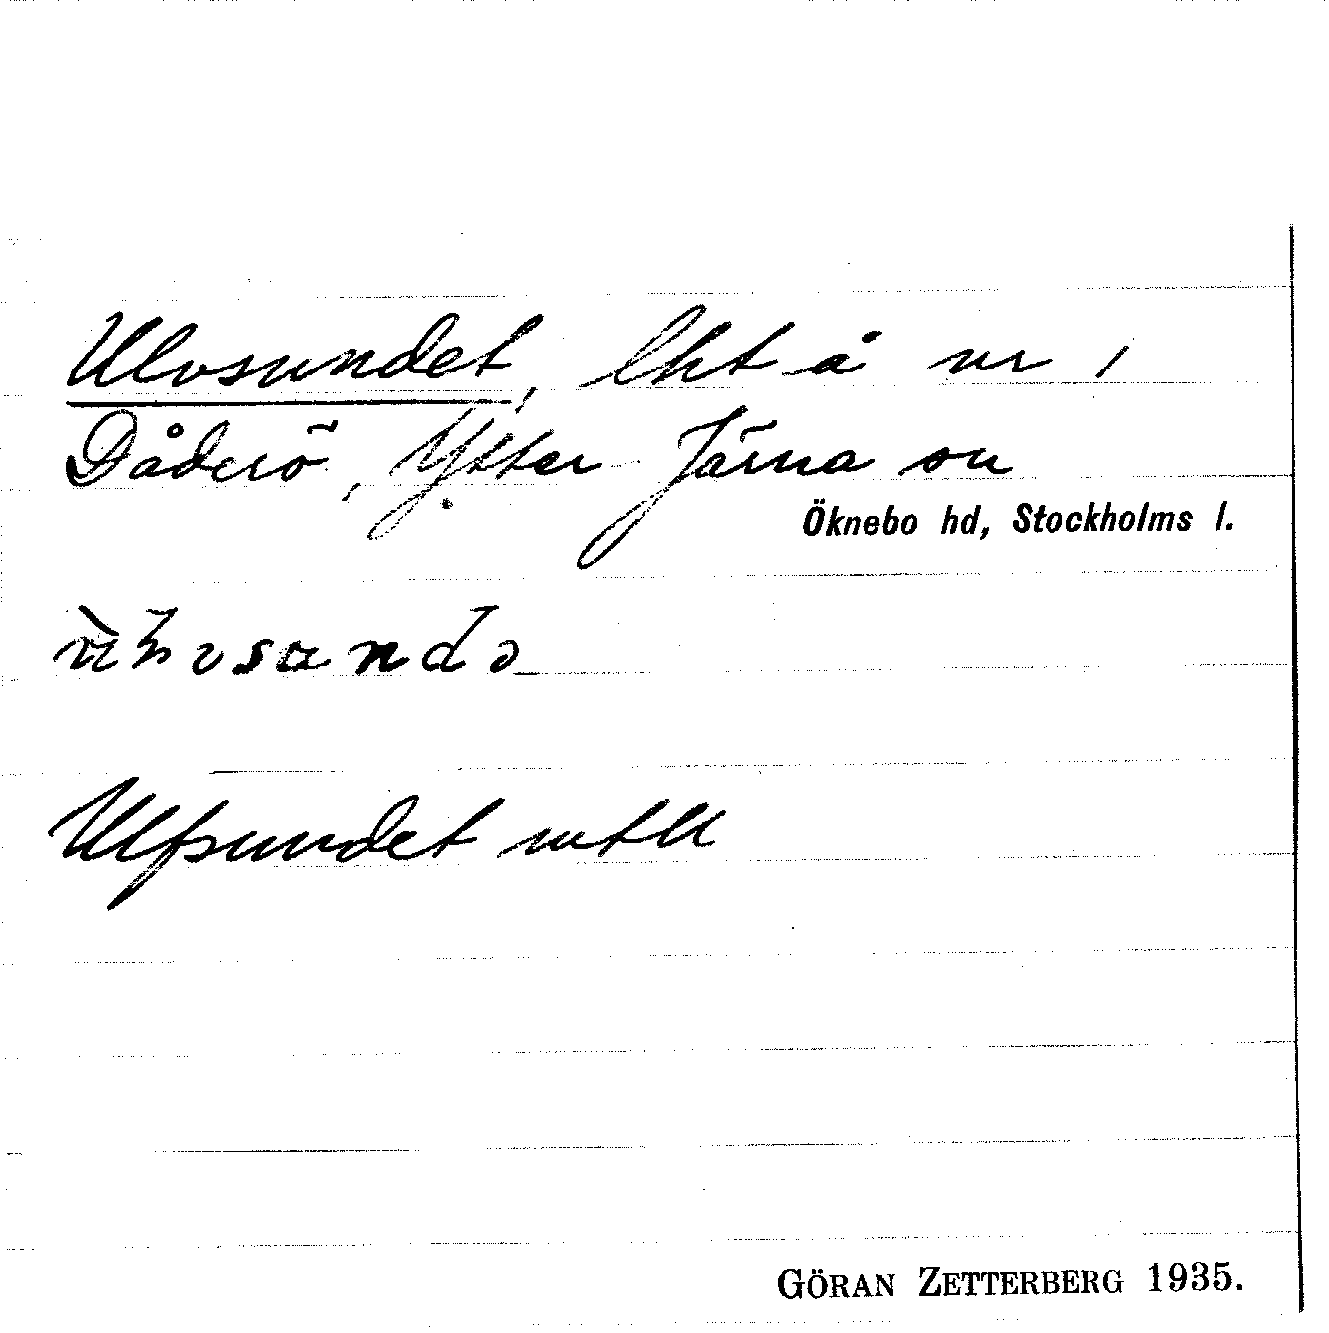 Ulvsundet, lht å nr 1
Dåderö, Ytter-Järna sn
Öknebo hd, Stockholms l.
Ulfsundet mtll
GÖRAN ZETTERBERG 1935.